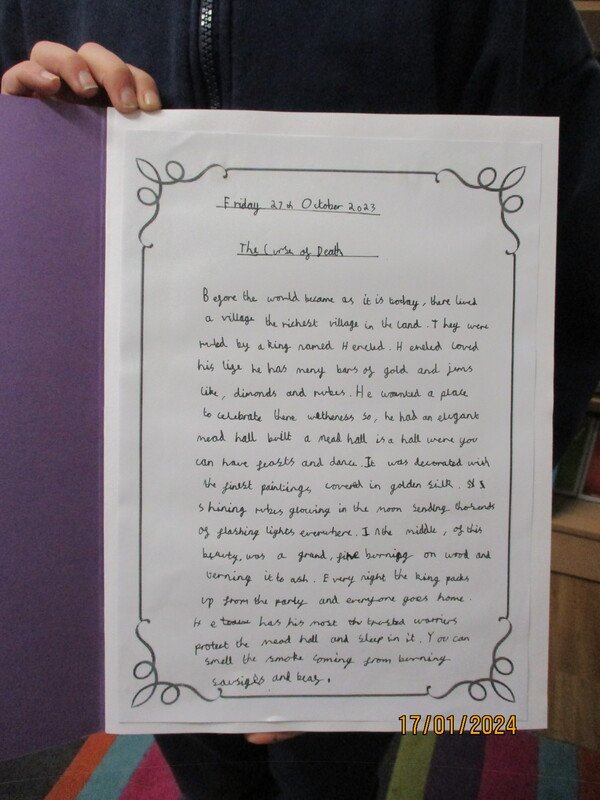 Friday 27th October 2023
The Curse of Death
Before the world became as it is today, there lived
a village the richest village in the land. They were
ruled by a king named Heneled. Heneled loved
his life he has meny bars of gold and jems
like, dimonds and rubes. He wounted a place
to celebrate there weltheness so, he had an elegant
mead hall built a mead hall is a hall were you
can have feasts and dance. It was decorated with
the finest paintings, covered in golden silk.
shining rubes glowing in the moon sending thousends
of flashing lights everwhere. In the middle, of this
beauty, was a grand, fire burning on wood and
terning it to ash. Every night the king packs
up from the party and everyone goes home.
He has his most trusted warriers
protect the mead hall and sleep in it. You can
smell the smoke coming from burning
sausiges and bear.
17/01/2024